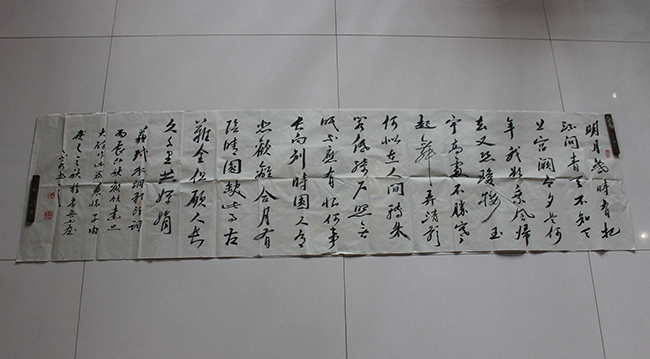 明月几时有把
酒问青天不知天
上宫阙今夕是何
年我欲乘风归
去又恐琼楼玉
宇高处不胜寒
起舞弄清影
何似在人间转朱
阁低绮户照无
眠不应有恨何事
长向别时圆人有
悲欢离合月有
阴晴圆缺此事古
难全但愿人长
久千里共婵娟
苏轼水调歌头词
丙辰中秋欢饮达旦
大醉作此篇兼怀子由